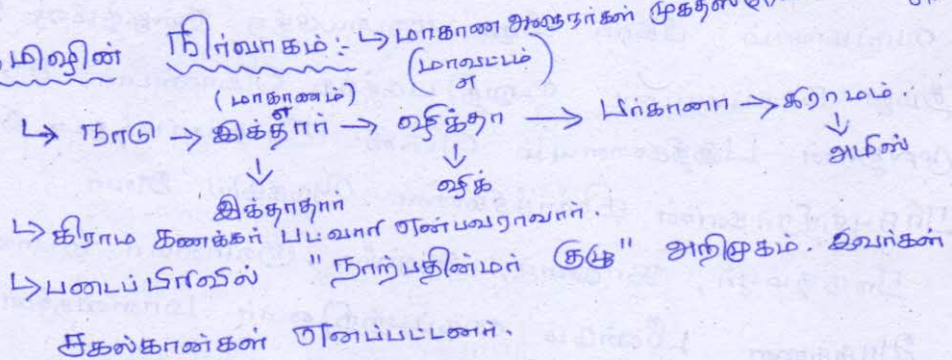 மிஷின் நிர்வாகம் :- ↳ மாகாண ஆளுநர்கள்
(மாகாணம்) (மாவட்டம்)
↳ நாடு → இக்தார் → ஷிக்தா → பர்கானா → கிராமம்.
↓ ↓ ↓
இக்தாதார் ஷிக் அமிஸ்
↳ கிராம கணக்கர் பட்வாரி என்பவராவார்.
↳ படைப்பிரிவில் "நாற்பதின்மர் குழு" அறிமுகம். இவர்கள்
சகல்கான்கள் எனப்பட்டனர்.